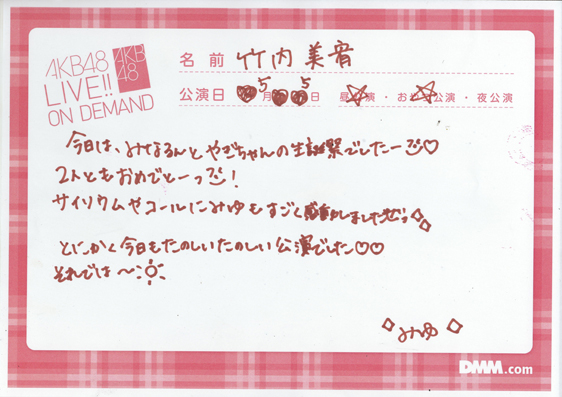 AKB48
LIVE!!
ON DEMAND
AKB
48
名前 竹内美宥
公演日 5月5日 昼公演・おやつ公演・夜公演
今日は、みなるんとやぎちゃんの生誕祭でしたー♡
2人ともおめでとーっ!
サイリウムやコールにみゆもすごく感動しましたぜっ
とにかく今日もたのしいたのしい公演でした♡♡
それでは〜
◇みゆ◇
DMM.com